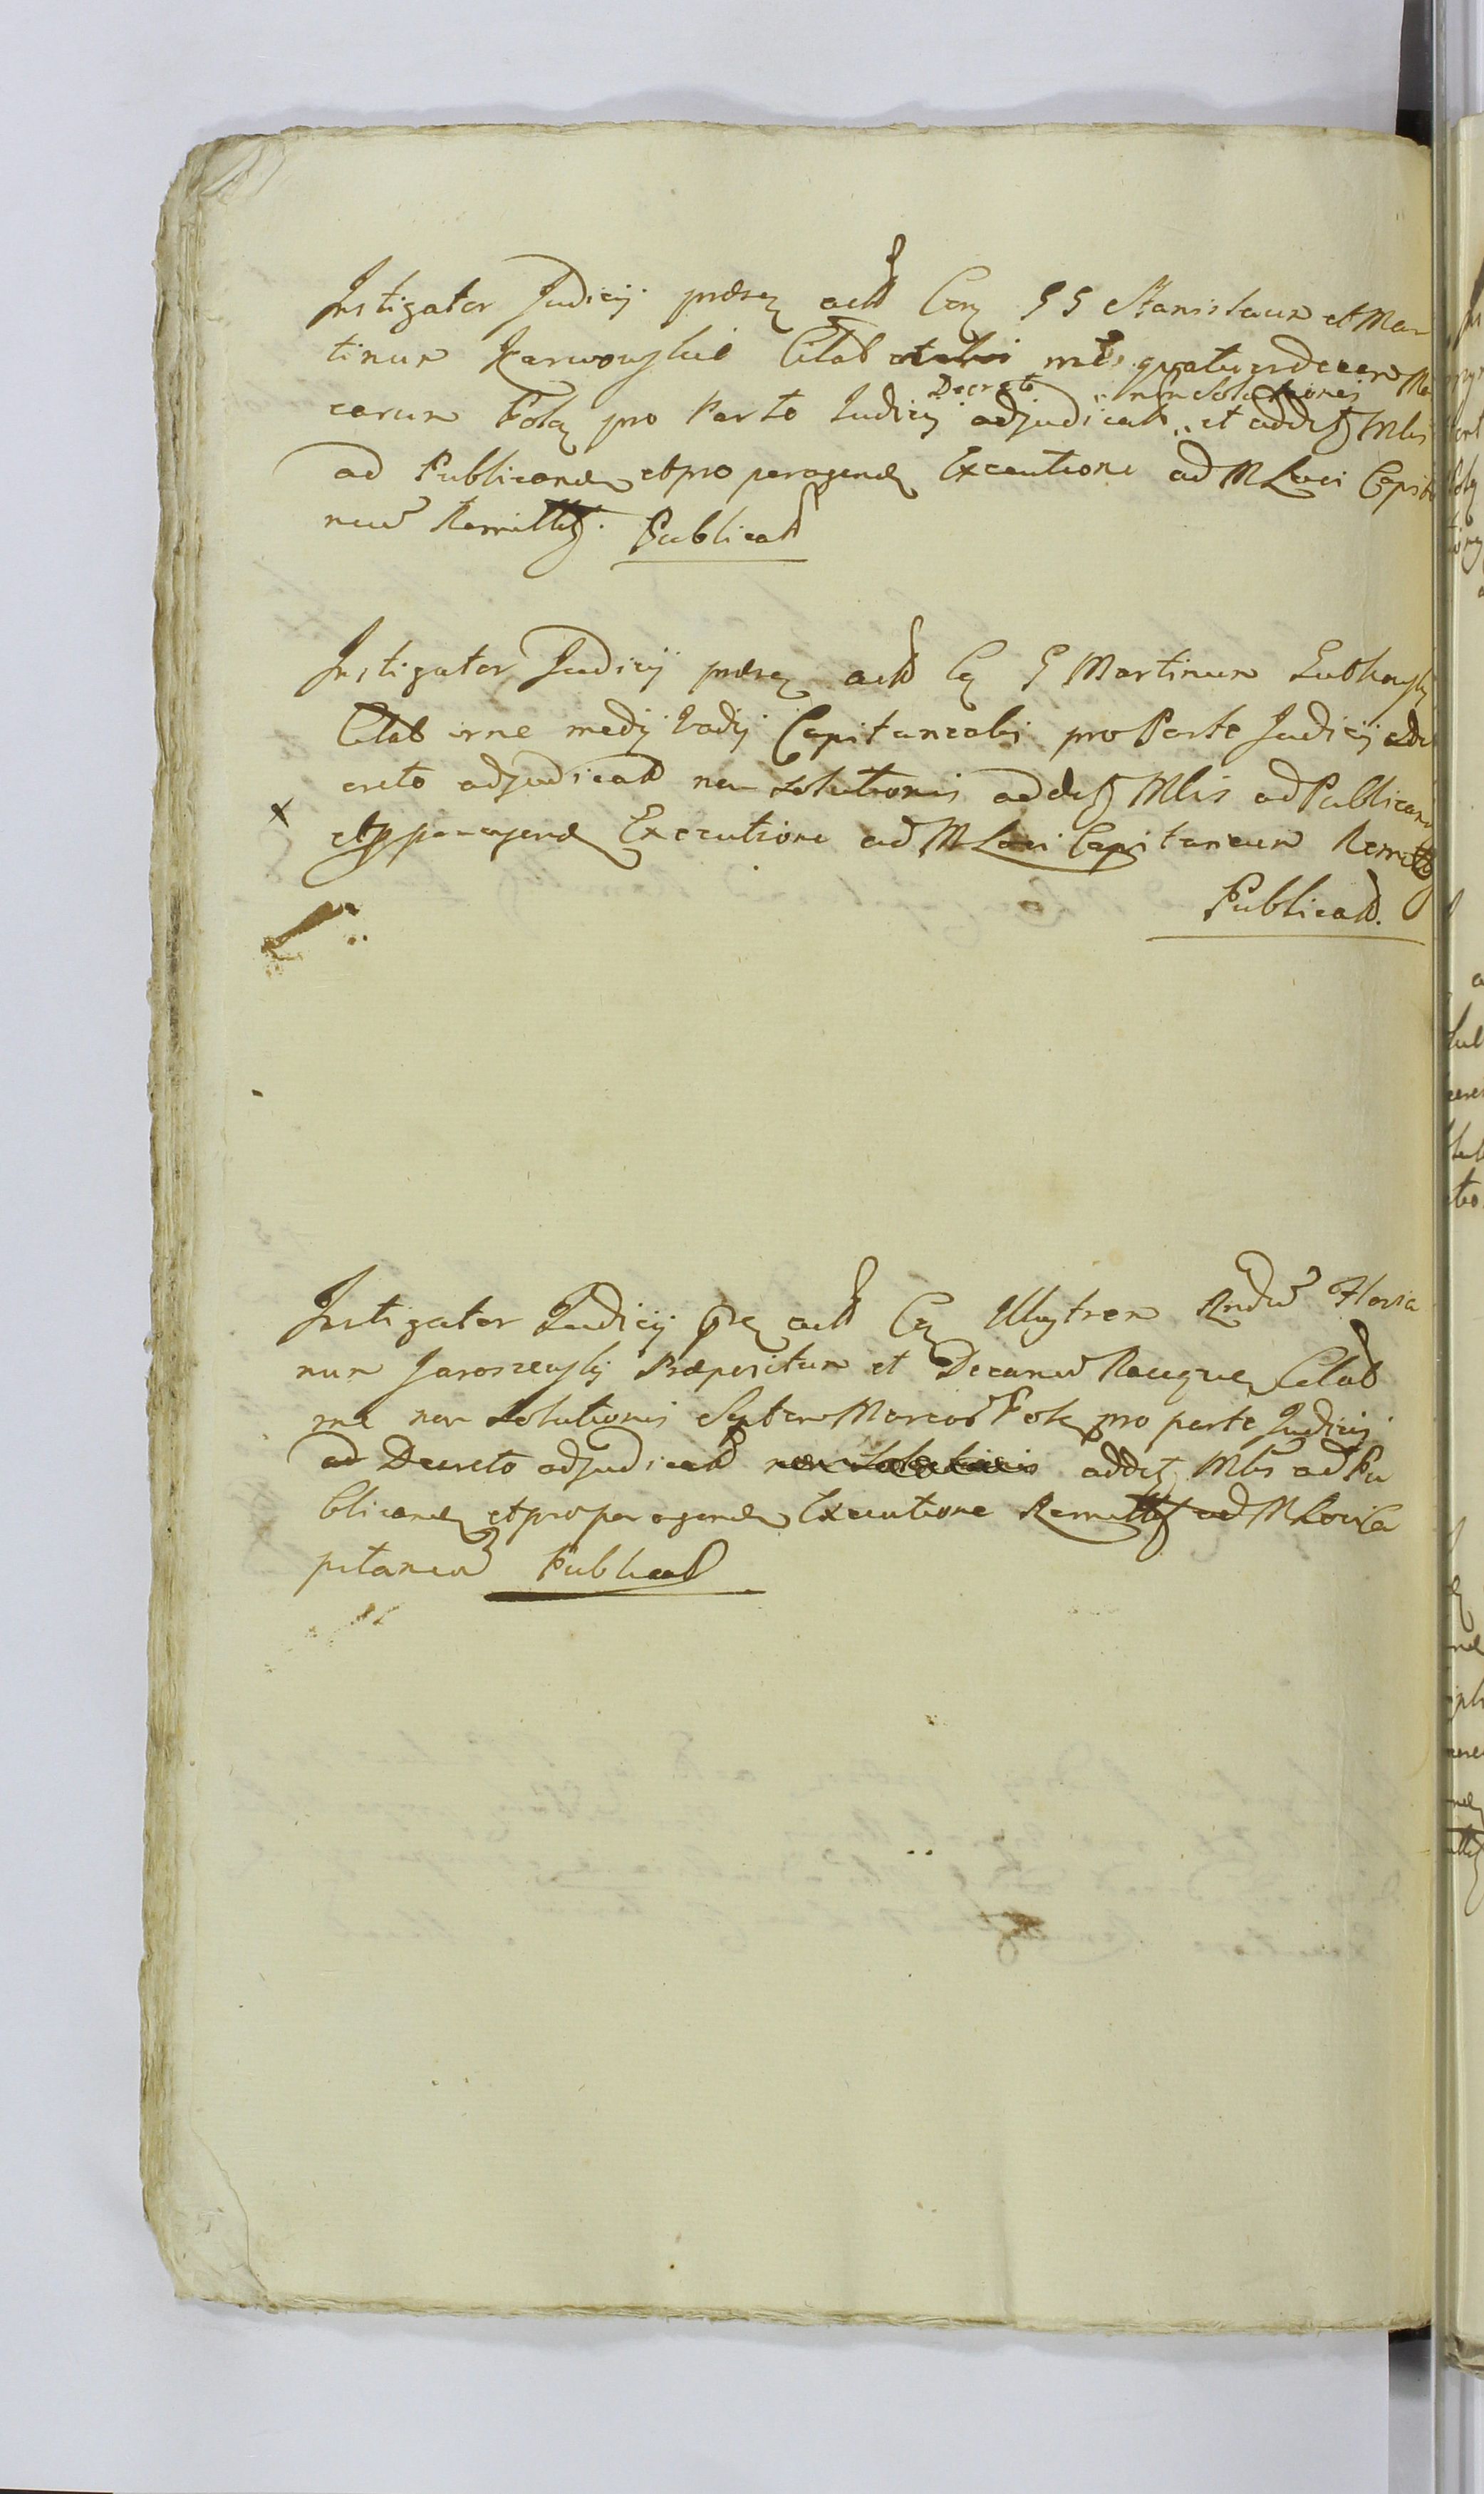 Instigator Judicij præsq actt Con GG Stanislaum et Mar
tinum Karwowskie Citat rne quatuordecem Mar
carum Polq pro Parte Judicij Decreto adjudicatt non Solutionis et addets Mlis
ad Publicand et pro peragend Executione ad M Loci Capita
neum Remitts. Publicatt
Instigator Judicij præsq actt Cq G Martinum Lutkowski
Citat rne medij Vadij Capitanealis pro Parte Judicij a De
creto adjudicatt non Solutionis addets Mlis ad Publicand
x et p peragend Executione ad M Loci Capitaneum Remitts
Publicatt.
Instigator Judicij actt Cq Illustrem Rndum Floria
num Jaroszewski Præpositum et Decanum Citatt
rne non Solutionis Septem Marcar Polq pro parte Judicij
ad Decreto adjudicatt non Solutionis addets Mlis ad Pu
blicand et pro peragend Executione Remitts ad M Loci Ca
pitaneum Publicatt